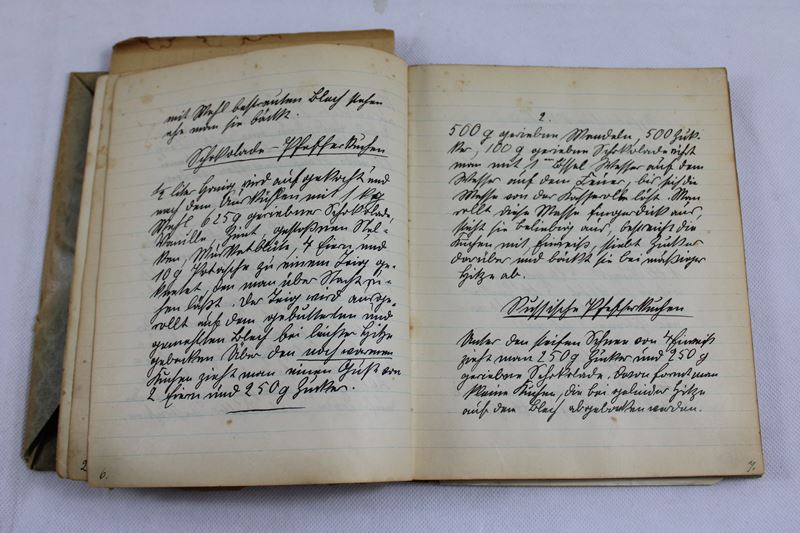 mit Mehl bestreuten Blech stehen
ehe man sie bäckt.
Schokolade-Pfefferkuchen
½ liter Honig wird aufgekocht und
nach dem Auskühlen mit 1 kg
Mehl 625g geriebner Schokolade,
Vanille, Zimt, gestoßenen Nel-
ken, Muskatblüte, 4 Eiern und
10g Potasche zu einem Teig ge-
knetet, den man über Nacht ste-
hen läßt. Der Teig wird ausge-
rollt auf dem gebutterten und
gemehlten Blech bei leichter Hitze
gebacken Über den noch warmen
Kuchen zieht man einen Guß von
2 Eiern und 250g Zucker.
2
6.
2.
500 g geriebene Mandeln, 500 Zuk-
ker, 100 g geriebene Schokolade
man mit 1 Wasser auf dem
Wasser auf dem Feuer, bis sich die
Masse von der Kasserolle löst. Man
rollt diese Masse fingerdick aus,
sticht sie beliebig aus, bestreicht die
Kuchen mit Eiweiß, siebt Zucker
darüber und bäckt sie bei mäßiger
Hitze ab.
Russische Pfefferkuchen
Unter den steifen Schnee von 4 Eiweiß
zieht man 250g Zucker und 250g
geriebene Schokolade. Davon formt man
kleine Kuchen, die bei gelinder Hitze
auf dem Blech abgebacken werden.
7.